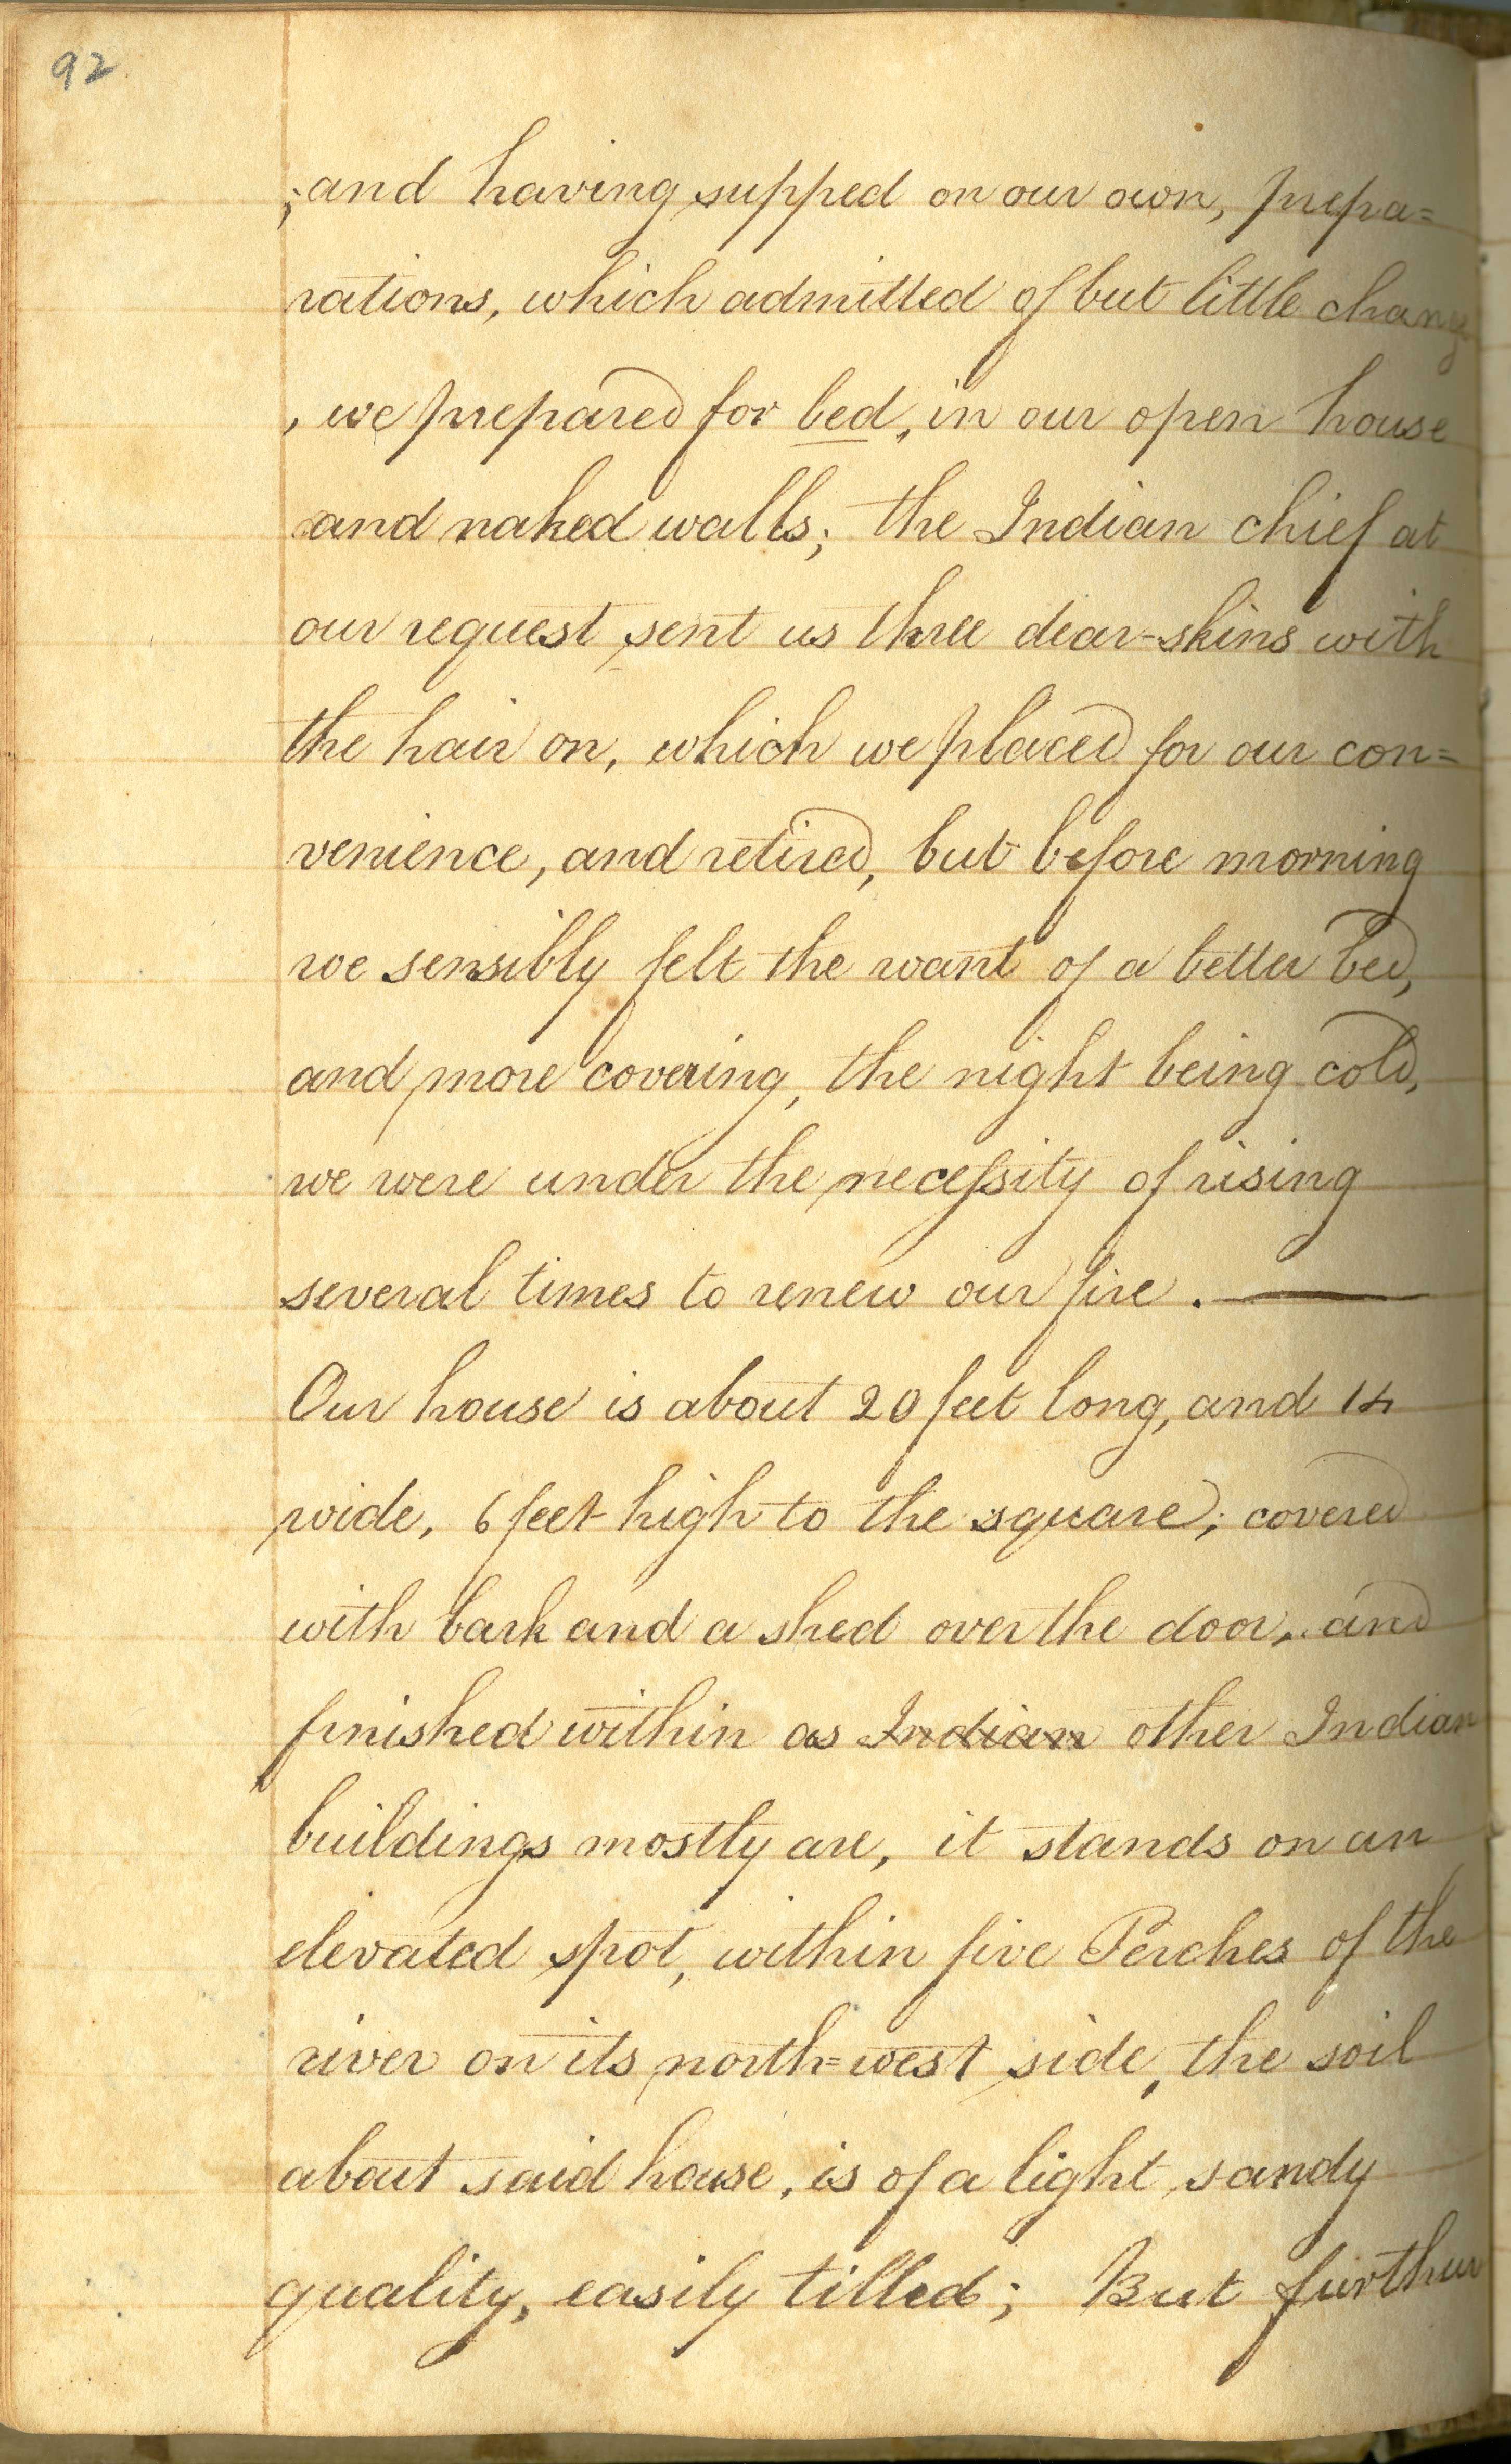 92
; and having supped on our own, prepa=
rations, which admitted of but little change
, we prepared for bed, in our open house
and naked walls; the Indian chief at
our request sent us three dear-skins with
the hair on, which we placed for our con=
venience, and retired, but before morning
we sensibly felt the want of a better bed,
and more covering, the night being cold,
we were under the necessity of rising
several times to renew our fire. —
Our house is about 20 feet long, and 14
wide, 6 feet high to the square; covered
with bark and a shed over the door, and
finished within as Indian other Indian
buildings mostly are, it stands on an
elevated spot, within five Perches of the
river on its north=west side, the soil
about said house, is of a light sandy
quality, easily tilled; But further